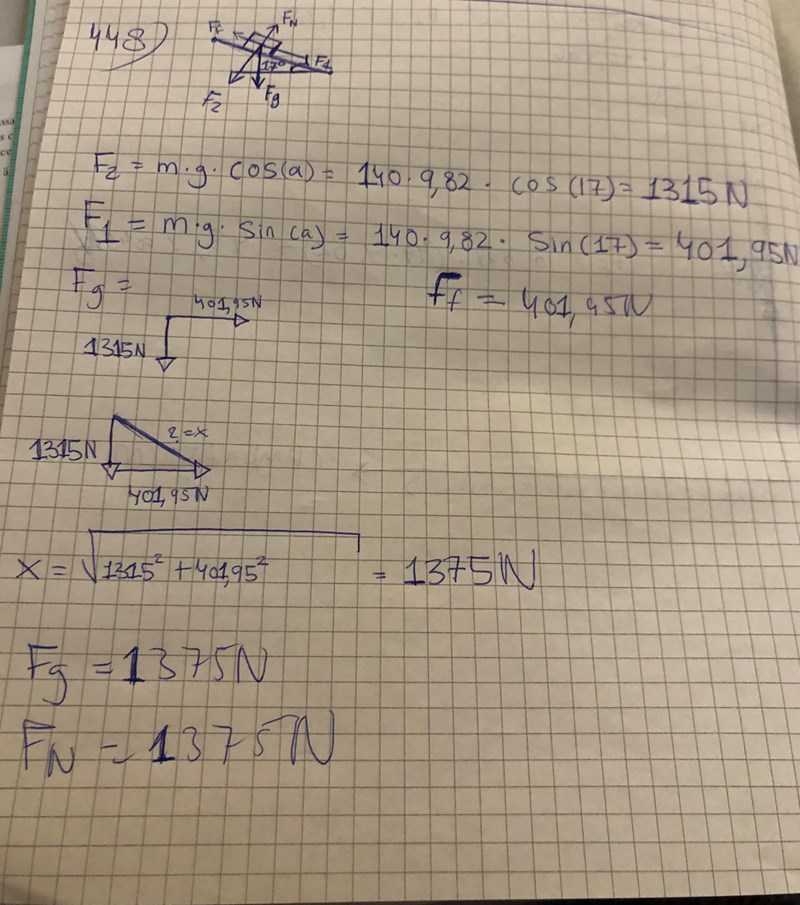 448)
Ff
FN
17°
F1
F2
Fg
F2 = m·g· cos(a) = 140·9,82 · cos(17) = 1315N
F1 = m·g· sin(a) = 140·9,82· sin(17) = 401,95N
Fg =
Ff = 401,95N
401,95N
1315N
1315N
?=x
401,95N
x = √1315² + 401,95² = 1375N
Fg = 1375N
FN = 1375N